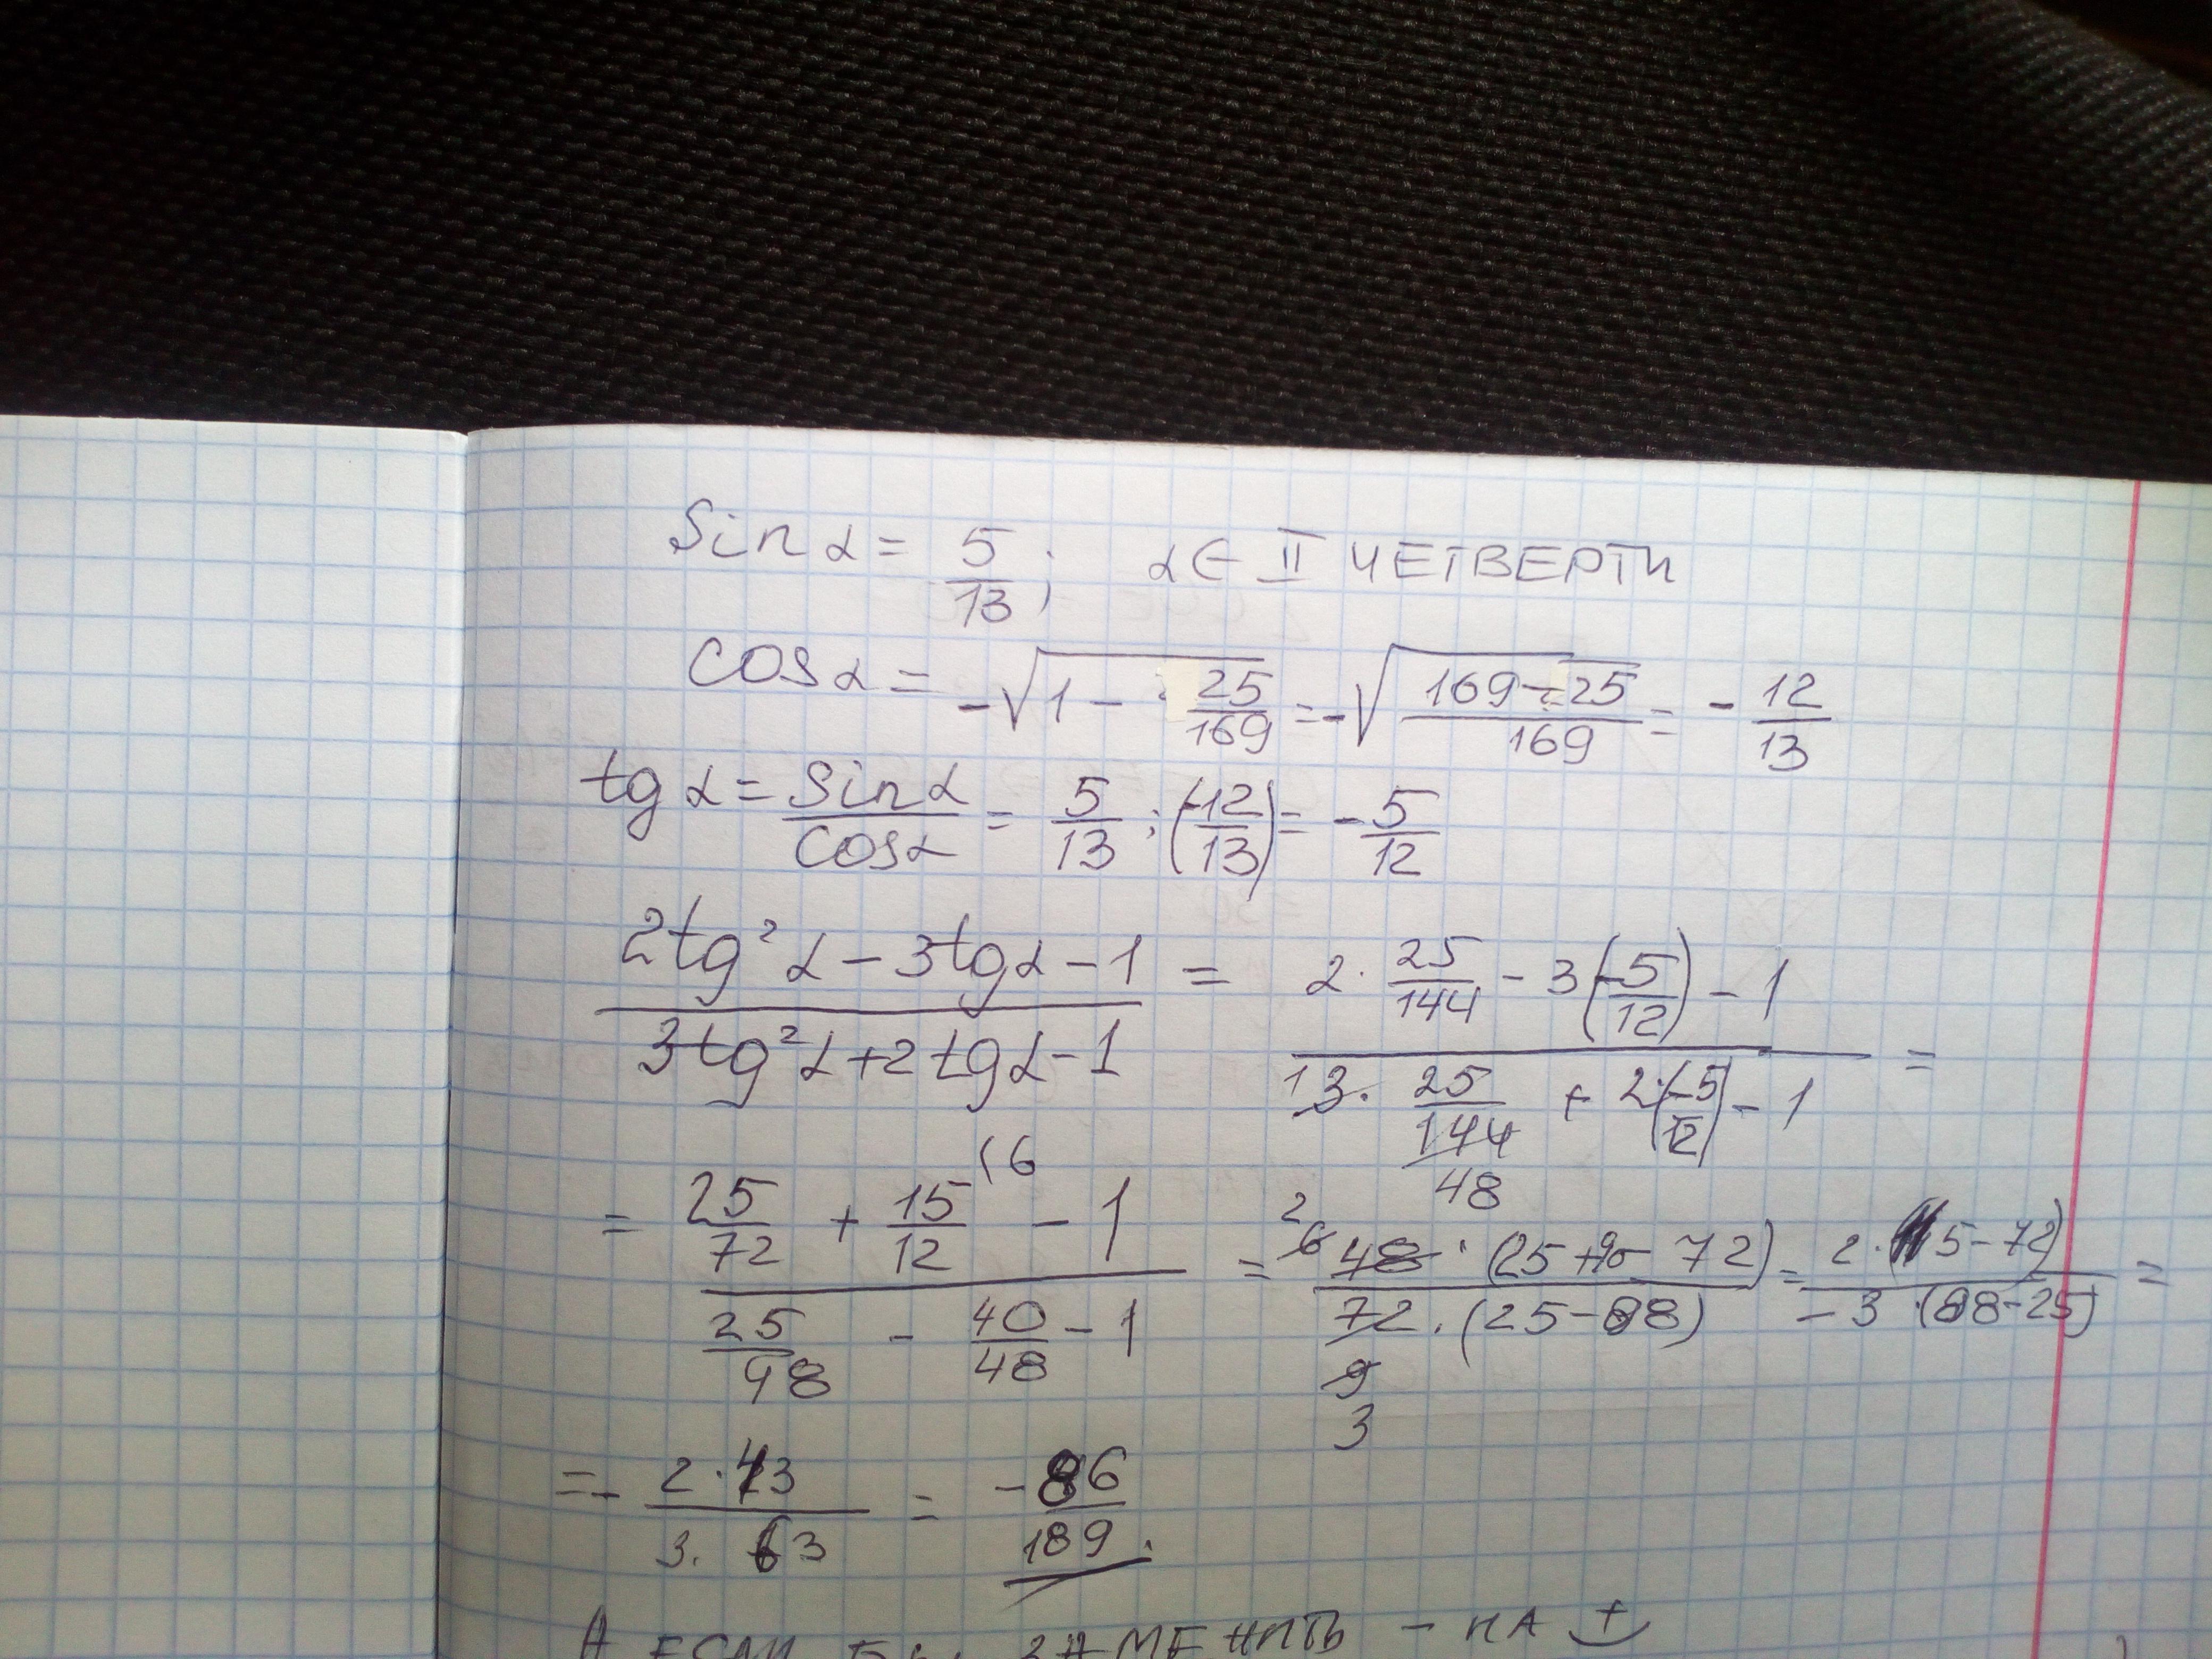 Sin α = 5/13 ; α ∈ II ЧЕТВЕРТИ
cos α = -√(1 - 25/169) = -√((169-25)/169) = - 12/13
tg α = sin α / cos α = 5/13 : (-12/13) = - 5/12
(2tg² α - 3tg α - 1)/(3tg² α + 2tg α - 1) = (2 · 25/144 - 3(-5/12) - 1)/(3 · 25/144 + 2·(-5/12) - 1) =
= (25/72 + 15/12 (6 - 1)/(25/48 - 40/48 - 1) = (48 · (25+90-72))/(72 · (25-88)) = (2 · (115-72))/(-3 · (88-25)) =
= - (2 · 43)/(3 · 63) = -86/189.
А ЕСЛИ БЫ ЗАМЕНИТЬ - НА +